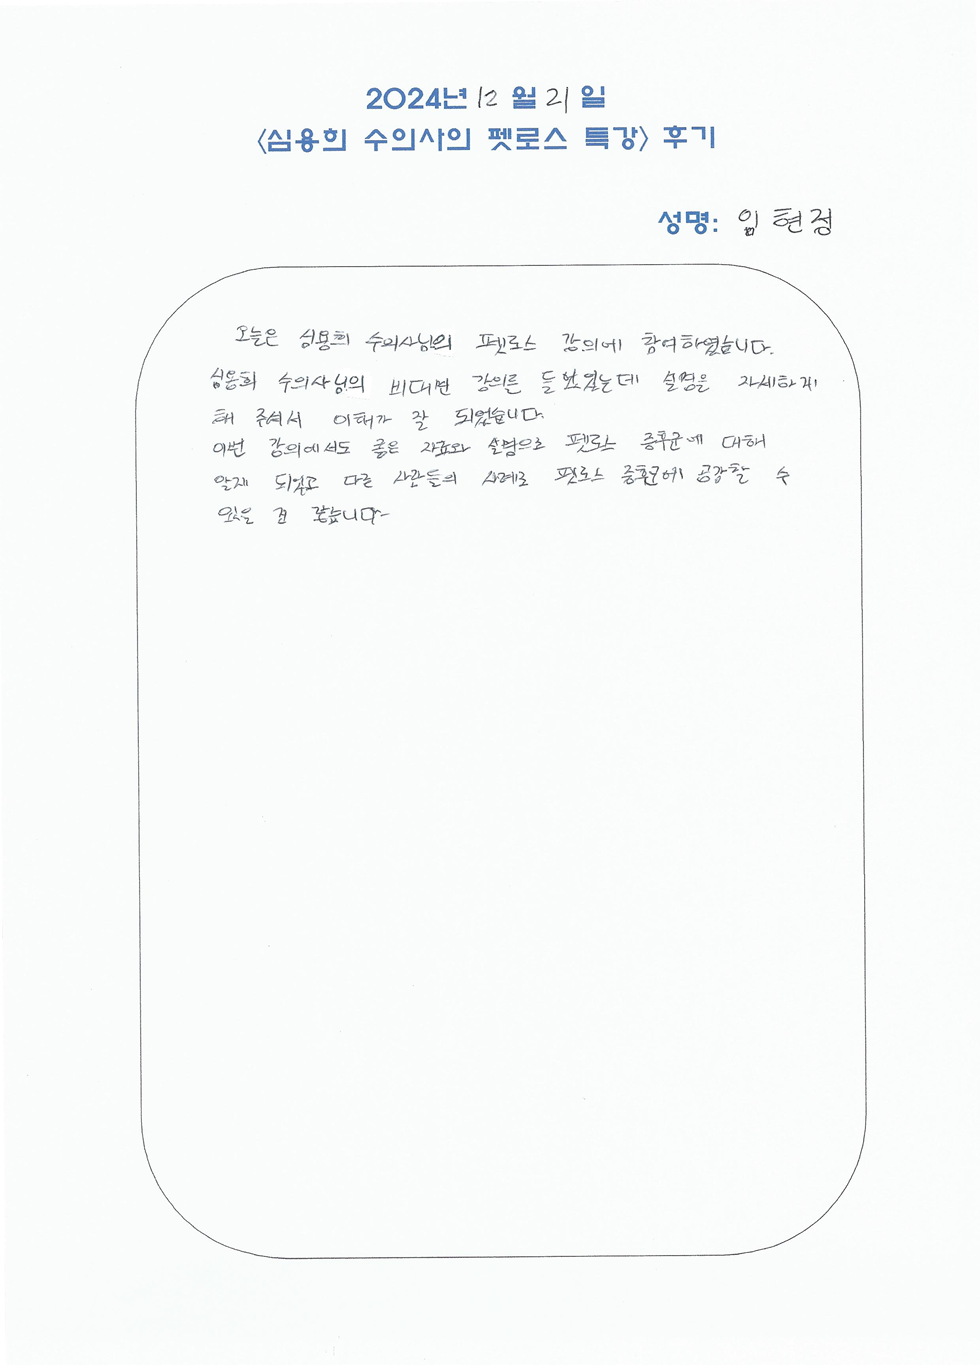 2024년 12월 21일
<심용희 수의사의 펫로스 특강> 후기
성명: 임현정
오늘은 심용희 수의사님의 펫로스 강의에 참여하였습니다.
심용희 수의사님의 비대면 강의를 들었었는데 설명을 자세하게
해 주셔서 이해가 잘 되었습니다.
이번 강의에서도 좋은 자료와 설명으로 펫로스 증후군에 대해
알게 되었고 다른 사람들의 사례로 펫로스 증후군에 공감할 수
있을 것 같습니다~